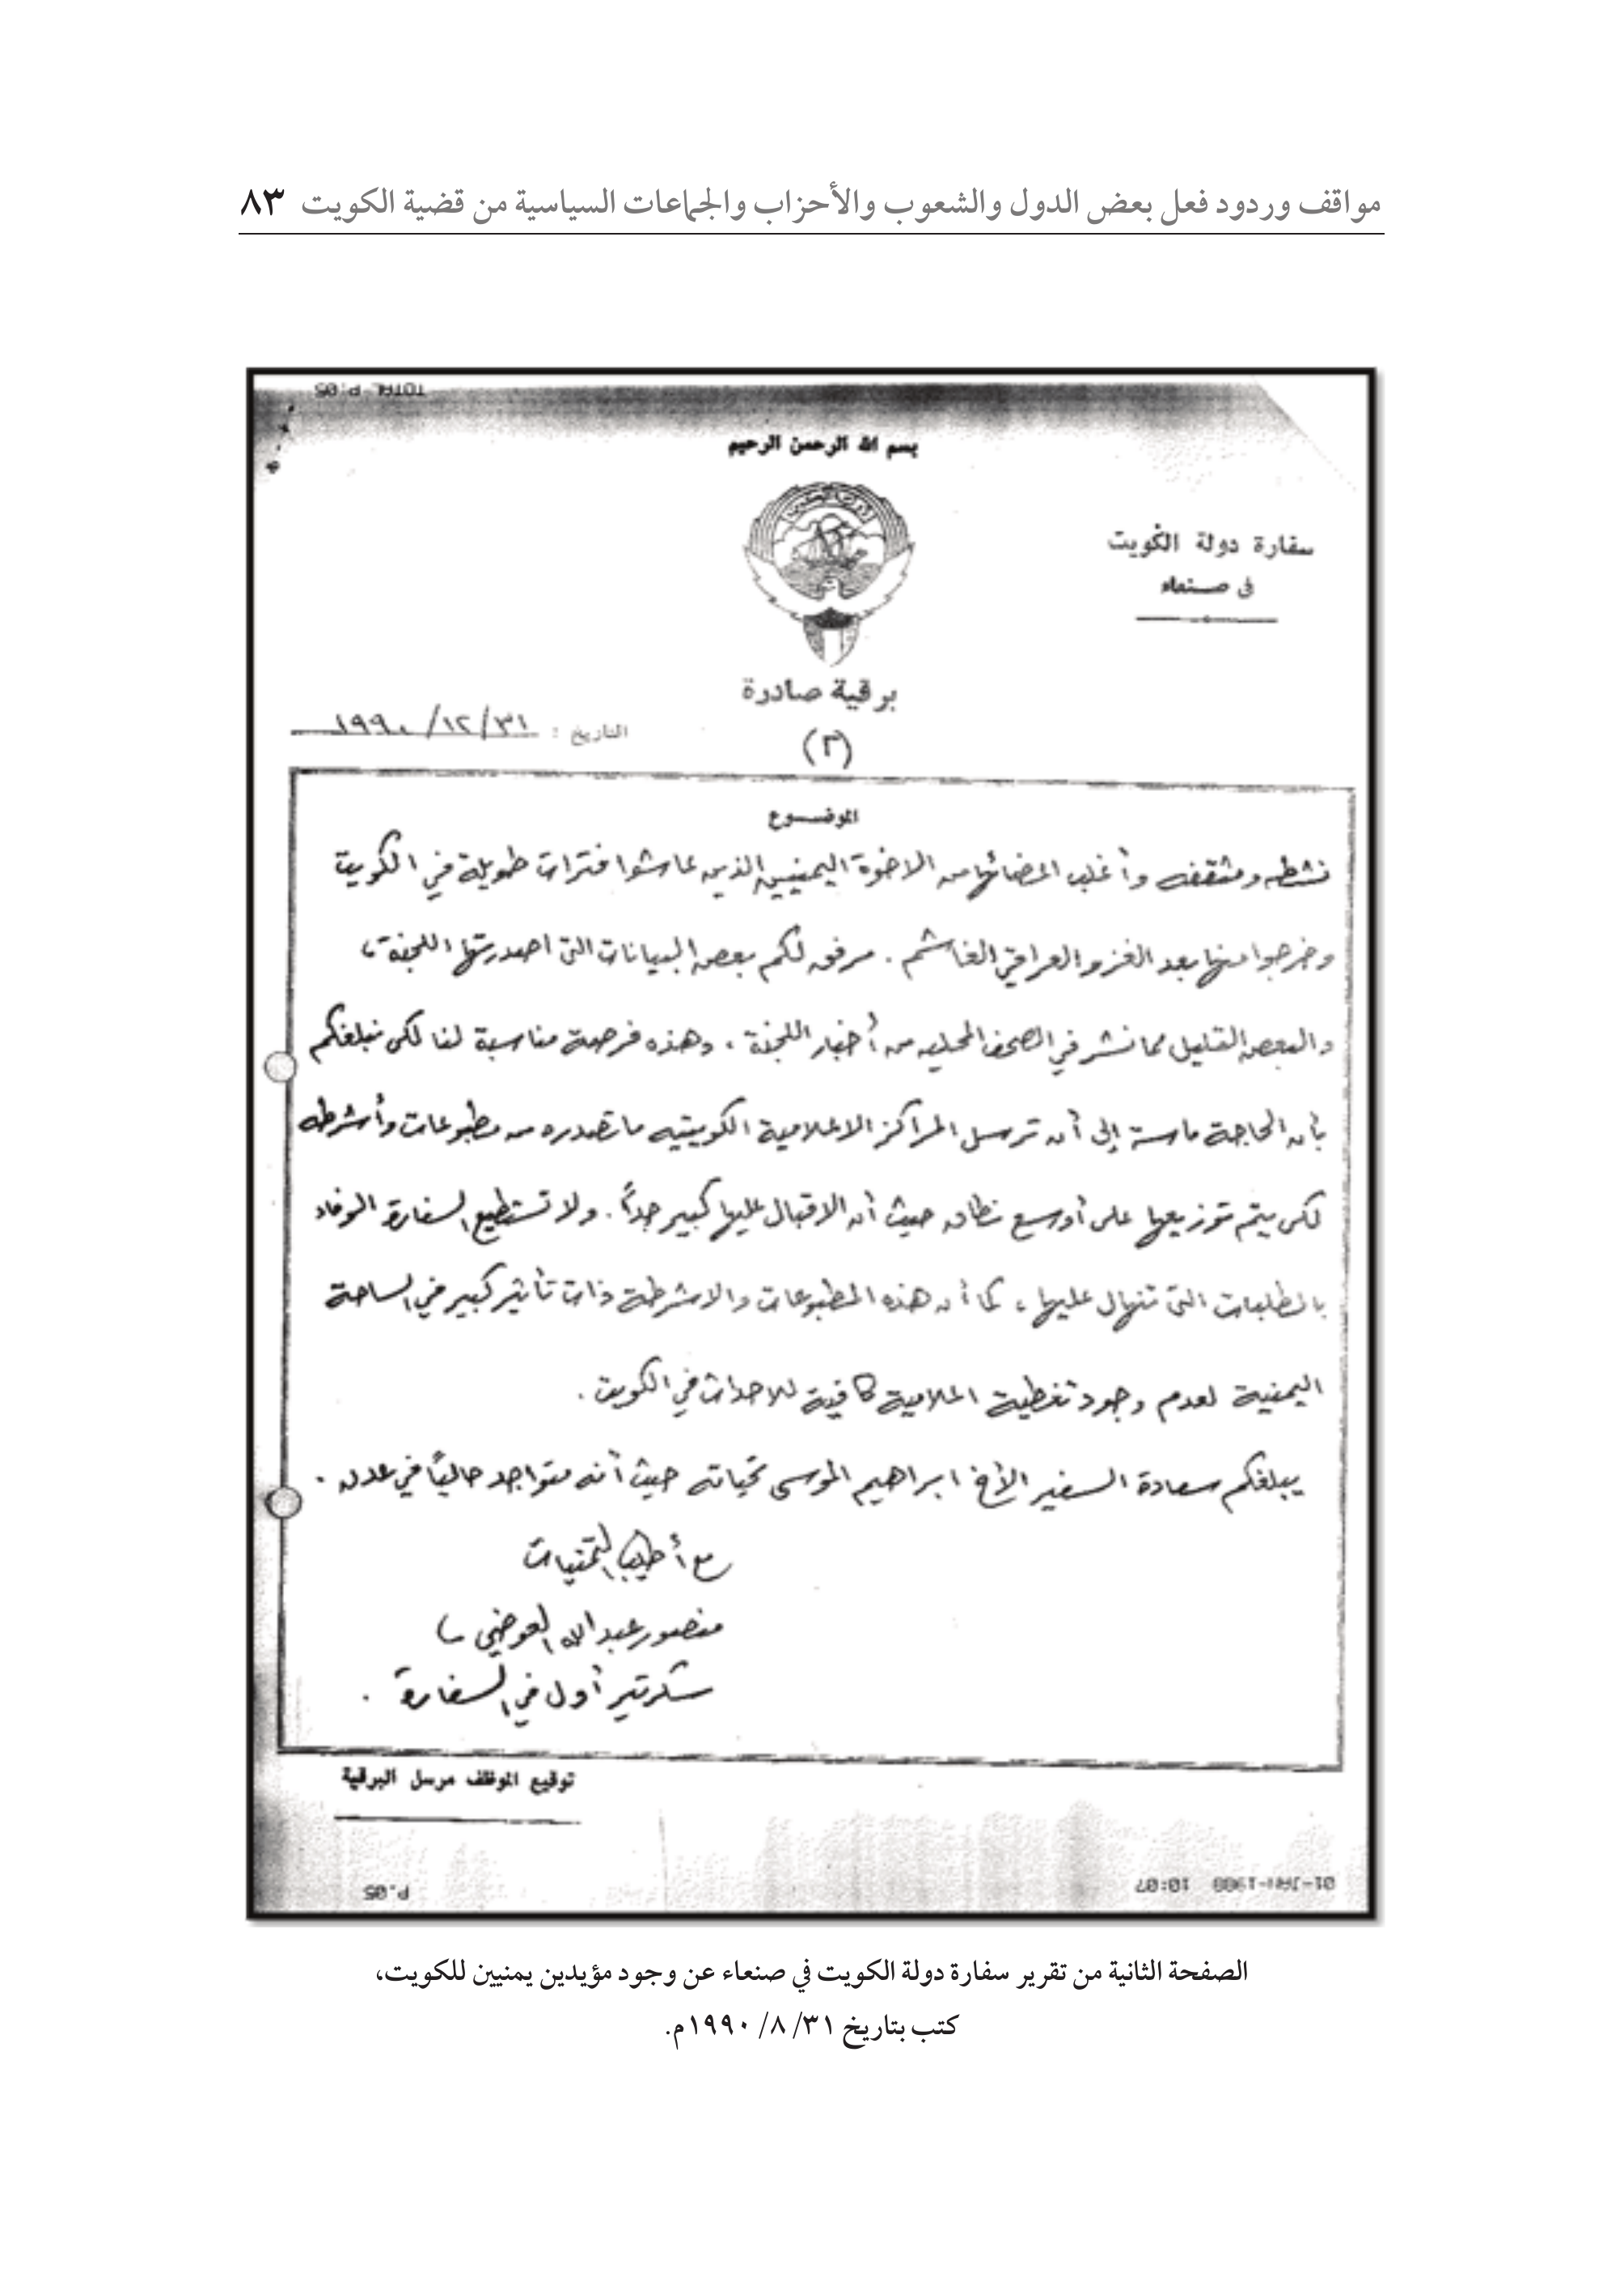 مواقف وردود فعل بعض الدول والشعوب والأحزاب والجماعات السياسية من قضية الكويت ٨٣
TOTAL P.05
بسم الله الرحمن الرحيم
سفارة دولة الكويت
في صنعاء
برقية صادرة
التاريخ : ١٩٩٠/١٢/٣١
(٢)
الموضوع
نشطه ومثقفه وأغلب اعضائها من الاخوة اليمنيين الذين عاشوا فترات طويلة في الكويت
وخرجوا منها بعد الغزو العراقي الغاشم . مرفق لكم بعض البيانات التي اصدرتها اللجنة ،
والبعض القليل مما نشر في الصحف المحليه من أخبار اللجنة ، وهذه فرصة مناسبة لنا لكي نبلغكم
بأن الحاجة ماسة إلى أن ترسل المراكز الاعلامية الكويتيه ما تصدره من مطبوعات وأشرطه
لكي يتم توزيعها على أوسع نطاق حيث أن الاقبال عليها كبير جداً . ولا تستطيع السفارة الوفاء
بالطلبات التي تنهال عليها ، كما أن هذه المطبوعات والاشرطة ذات تأثير كبير في الساحة
اليمنية لعدم وجود تغطية اعلامية كافية للاحداث في الكويت .
يبلغكم سعادة السفير الأخ ابراهيم الموسى تحياته حيث أنه متواجد حالياً في عدن .
مع أطيب التمنيات
منصور عبدالله العوضي
سكرتير أول في السفارة .
توقيع الموظف مرسل البرقية
P.05
01-JAN-1988 10:07
الصفحة الثانية من تقرير سفارة دولة الكويت في صنعاء عن وجود مؤيدين يمنيين للكويت،
كتب بتاريخ ٣١/ ٨/ ١٩٩٠م.